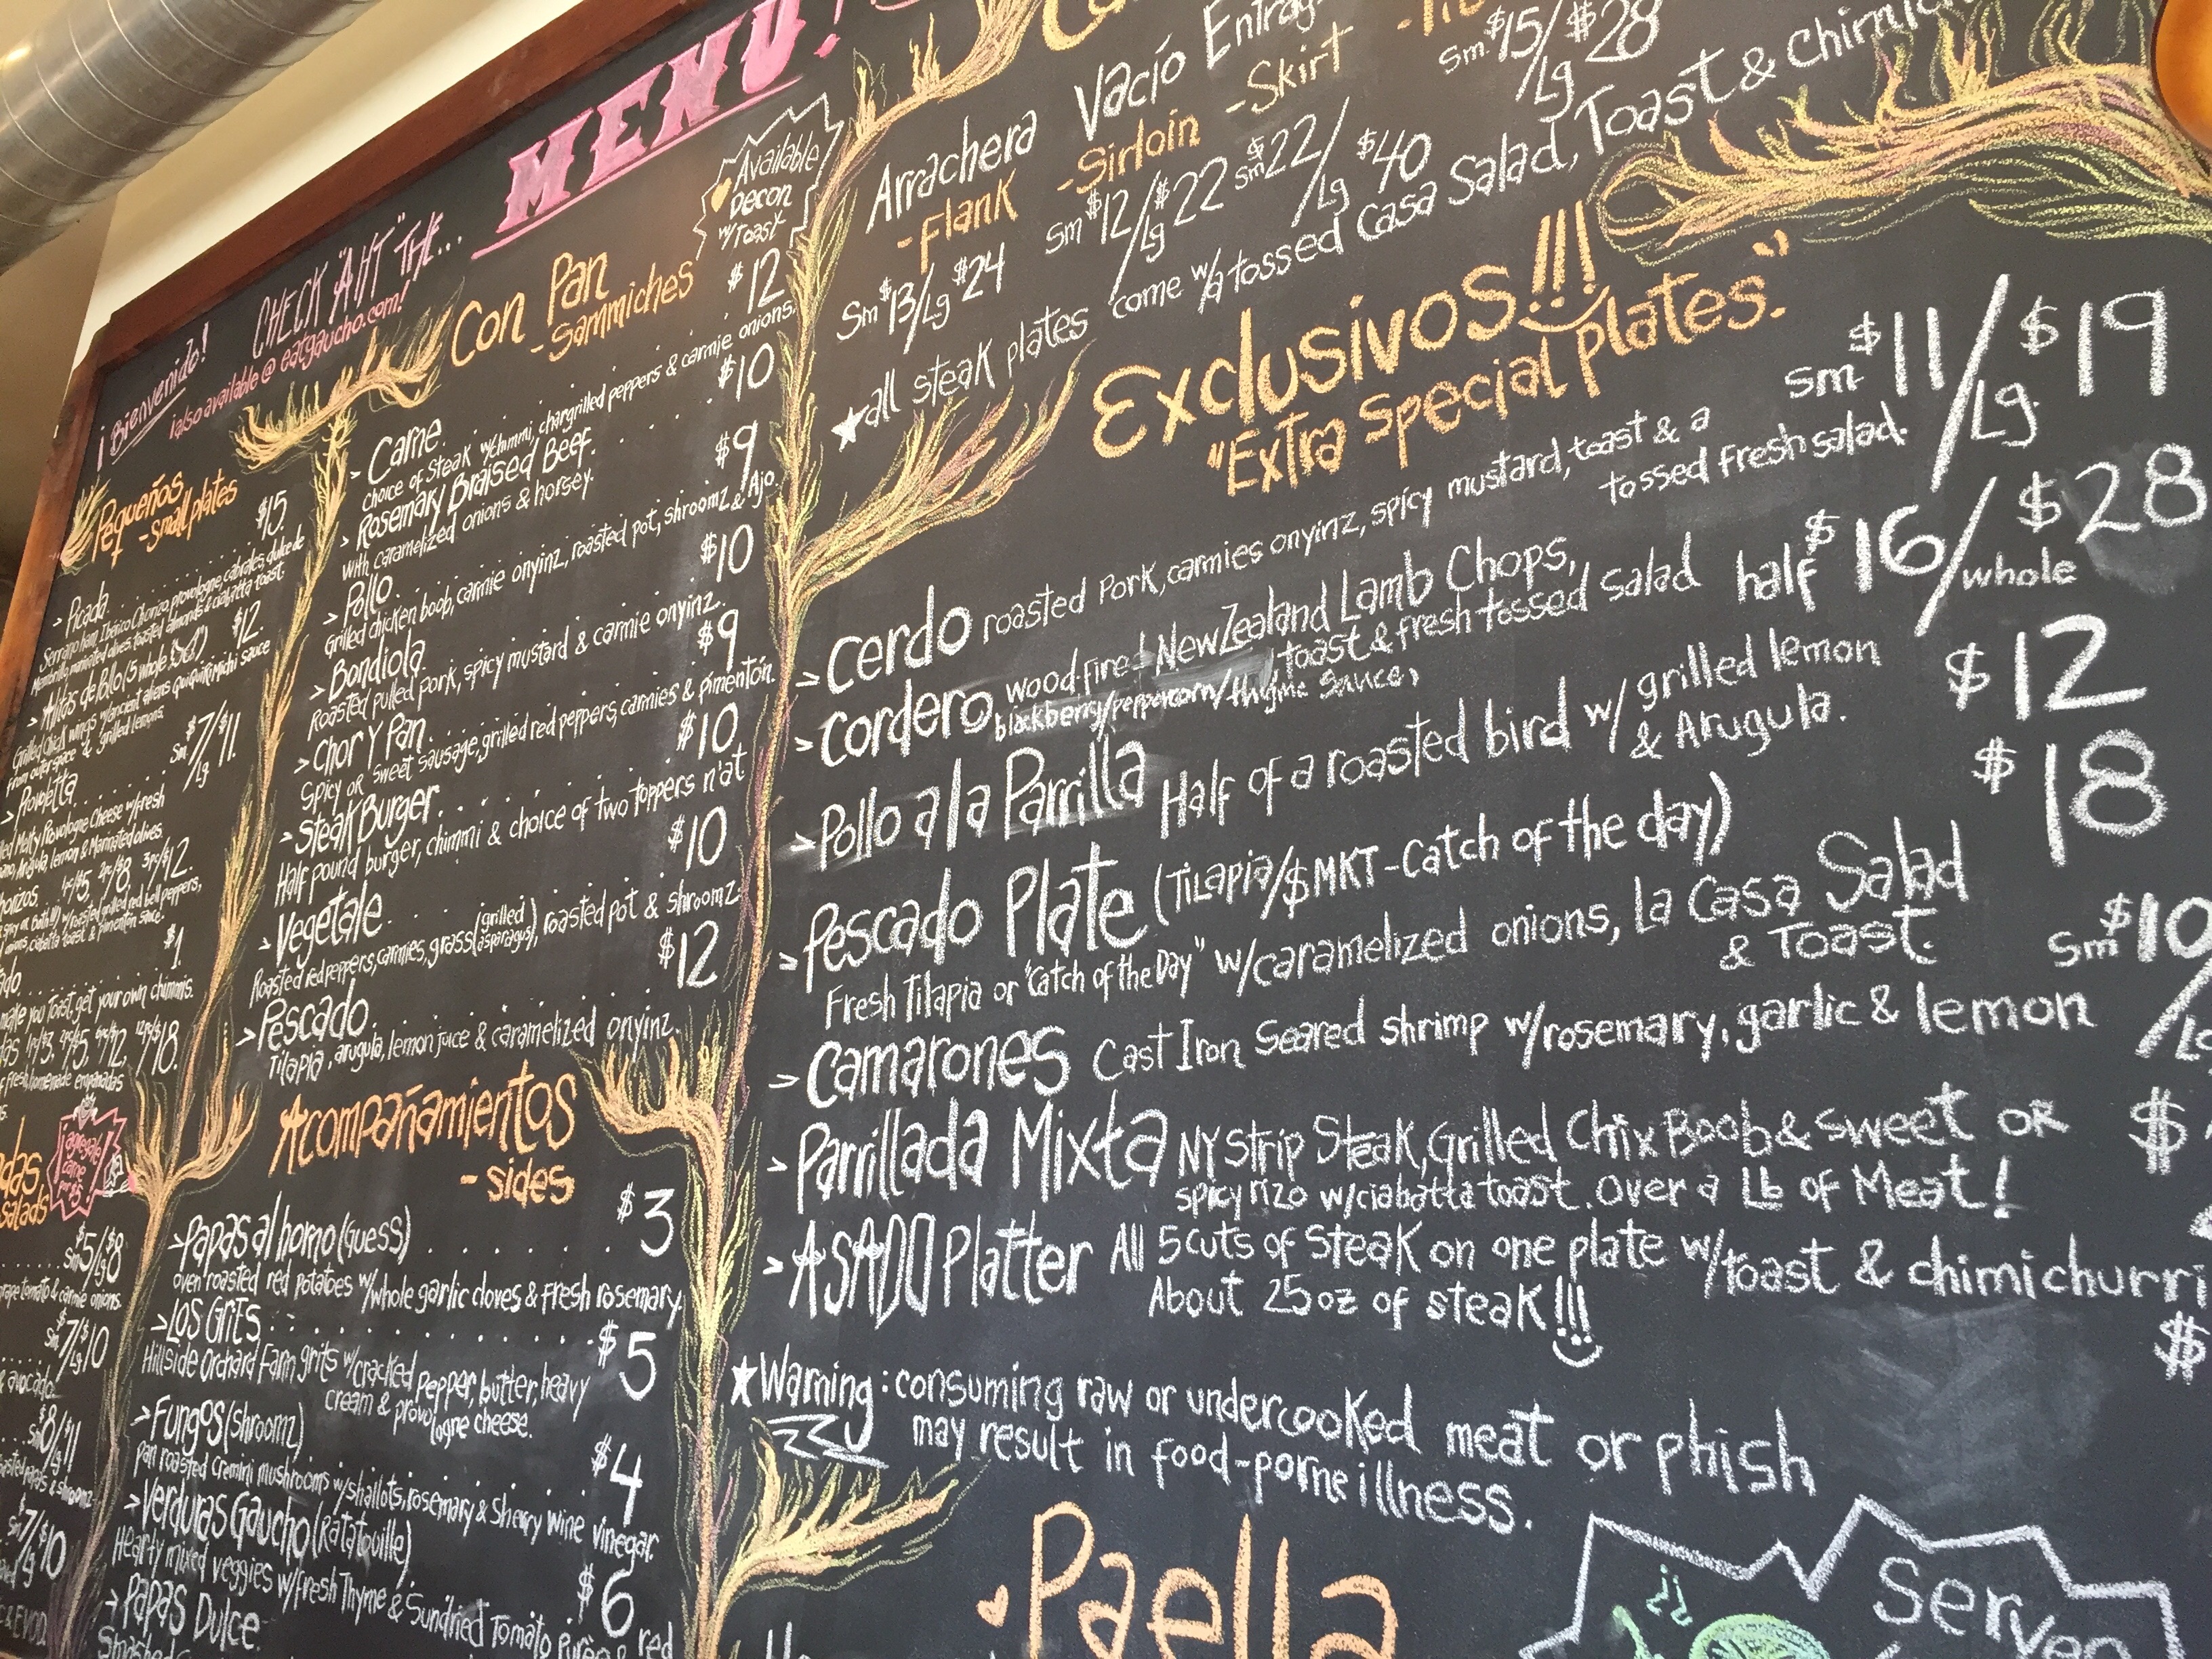 MENU!
CHECK "AHT" THE...
¡Bienvenido!
¡also available @ eatgaucho.com!
Pequeños
-small plates
> Picada $15
Serrano ham, Ibérico Chorizo, provologne, cabrales, dulce de
Membrillo, marinated olives, toasted almonds & ciabatta toast.
> Alitas de Pollo (5 whole $12.
Grilled Chick wings w/ancient aliens quiquirimichi sauce
from outer space & grilled lemons.
> Provoletta Sm $7/Lg $11.
Melty Provologne Cheese w/fresh
Arugula, lemon & Marinated olives.
1pc/$5, 2pc/$8, 3pc/$12.
w/roasted grilled red bell peppers,
onions, ciabatta toast & pimenton sauce.
$1.
make you toast, get your own chimmis.
1pc/$3, 2pc/$5, $12, 12pc/$18.
fresh, homemade empanadas
salads
¡agregale
carne
por $5!
Sm $5/Lg $8
grape tomato & carmie onions.
Sm $7/Lg $10
& avocado.
Sm $8/Lg $11
roasted papas & shroomz
Sm $7/Lg $10
& EVOO
Con Pan
-Sammiches
Available
Decon
w/Toast
> Carne $12
choice of Steak w/chimmi, chargrilled peppers & carmie onions.
> Rosemary Braised Beef. $10
with caramelized onions & horsey.
> Pollo $9
Grilled chicken boob, carmie onyinz, roasted pot, shroomz & Ajo.
> Bondiola $10
Roasted pulled pork, spicy mustard & carmie onyinz.
> Chor Y Pan $9
Spicy or Sweet sausage, grilled red peppers, carmies & pimentón.
> Steak Burger $10
Half pound burger, chimmi & choice of two toppers n'at
> Vegetale $10
Roasted red peppers, carmies, grass (grilled asparagus), roasted pot & shroomz
> Pescado $12
Tilapia, arugula, lemon juice & caramelized onyinz.
Acompañamientos
- sides
> Papas al horno (guess) $3
oven roasted red potatoes w/whole garlic cloves & fresh rosemary.
> Los Grits $5
Hillside Orchard Farm grits w/cracked pepper, butter, heavy
cream & provologne cheese.
> Fungos (shroomz) $4
pan roasted cremini mushrooms w/shallots, rosemary & Sherry wine vinegar.
> Verduras Gaucho (Ratatouille) $6
Hearty mixed veggies w/fresh Thyme & Sundried Tomato Purée & red
> Papas Dulce
Smashed
Arrachera
-Flank
Sm $13/Lg $24
Vacío
-Sirloin
Sm $12/Lg $22
-Skirt
Sm $22/Lg $40
Sm. $15/Lg $28
★all steak plates come w/a tossed casa salad, Toast &
Exclusivos!!!
"Extra Special Plates."
> Cerdo roasted Pork, carmies onyinz, spicy mustard, toast & a Sm. $11/Lg. $19
tossed fresh salad.
> Cordero wood fired New Zealand Lamb Chops, half $16/whole $28
toast & fresh tossed salad
blackberry/peppercorn/thyme Saunce,
> Pollo a la Parrilla Half of a roasted bird w/ grilled lemon $12
& Arugula.
> Pescado Plate (Tilapia/$MKT-Catch of the day) $18
Fresh Tilapia or "Catch of the Day" w/caramelized onions, La Casa Salad
& Toast.
> Camarones Cast Iron Seared shrimp w/rosemary, garlic & lemon Sm $10/
> Parrillada Mixta NY Strip Steak, Grilled Chix Boob & Sweet OR $
spicy rizo w/ciabatta toast. Over a Lb of Meat!
> ASADO Platter All 5 cuts of steak on one plate w/toast & chimichurri
About 25 oz of steak!!! $
★Warning: consuming raw or undercooked meat or phish
may result in food-porne illness.
Paella